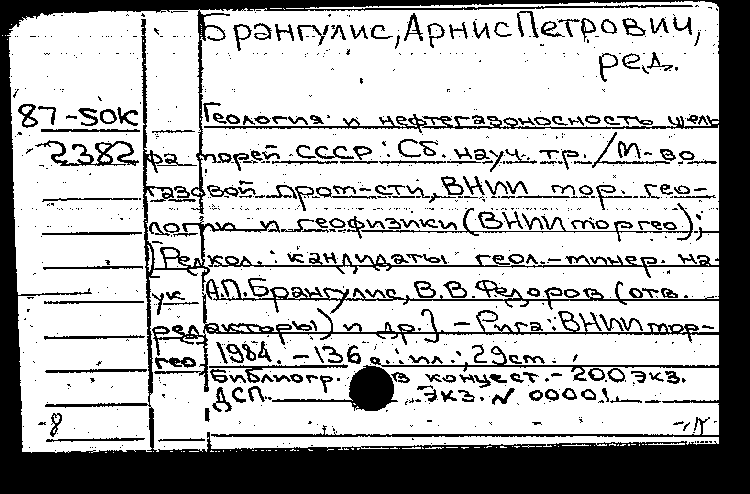 Брангулис, Арнис Петрович,
ред.
87-50к Геология и нефтегазоносность шель
2382 фа морей СССР : Сб. науч. тр. / М-во
газовой пром-сти, ВНИИ мор. гео-
логии и геофизики (ВНИИморгео);
[Редкол.: кандидаты геол.-минер. на-
ук А.П. Брангулис, В.В. Федоров (отв.
редакторы) и др.]. - Рига : ВНИИмор-
гео, 1984. - 136 с. : ил.; 29 см.
Библиогр. в конце ст. - 200 экз.
ДСП. Экз. N 00001.
-8